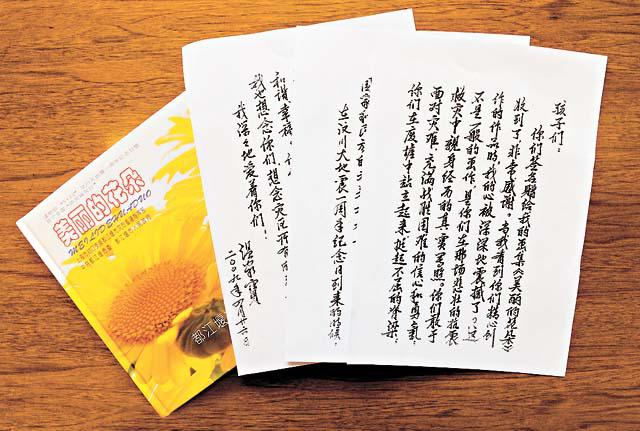 孩子们：
你们签名赠给我的画集《美丽的花朵》
收到了非常感谢。当我看到你们精心创
作的作品时，我的心被深深地震撼了。这
不是一般的画作，是你们在那场悲壮的抗震
救灾中亲身经历的真实写照。你们敢于
面对灾难，充满战胜困难的信心和勇气；
你们在废墟中站立起来，挺起不屈的脊梁；
在汶川大地震一周年纪念日到来的时候，
和谐幸福。
我也想念你们，想念灾区所有的
我深深地爱着你们！
温家宝
二〇〇九年四月
美丽的花朵
MEILIDEHUADUO
都江堰